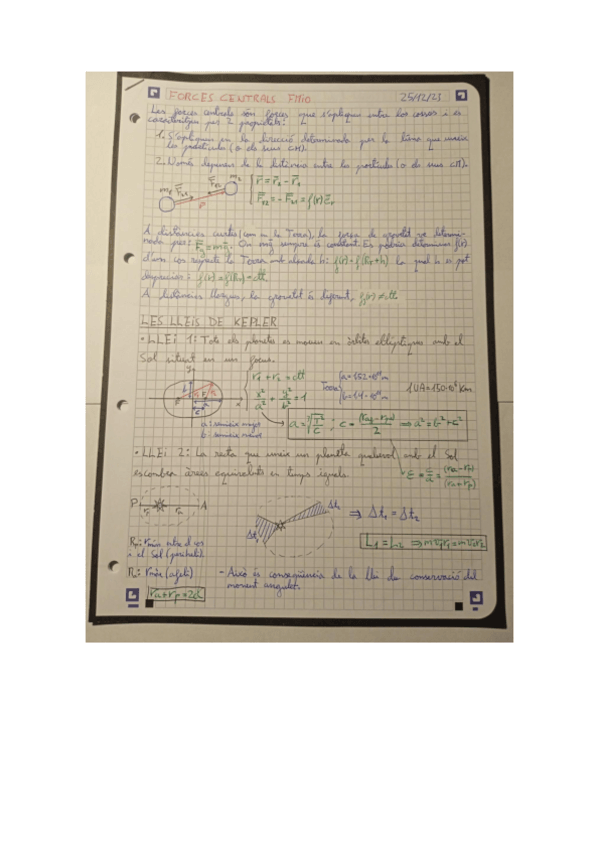 FORCES CENTRALS FMiO 25/12/23
Les forces centrals són forces que s'apliquen entre dos cossos i es
caracteritzen per 2 propietats:
1. S'apliquen en la direcció determinada per la línia que uneix
les partícules (o de seus CM).
2. Només depenen de la distància entre les partícules (o de seus CM).
m₁ m₂ r
r = r₂ - r₁
= - = f(r)
A distàncies curtes (com en la Terra), la força de gravetat ve determi-
nada per: = mg. On sempre és constant. Es podria determinar f(r)
d'un cos respecte la Terra amb alçada h: f(r) = f(R_T + h) la qual h es pot
f(r) = f(R_T) = ctt
A distàncies llargues, la gravetat és diferent, f(r) ≠ ctt
LES LLEIS DE KEPLER
• LLEI 1: Tots els planetes es mouen en òrbites el·líptiques amb el
Sol situat en un focus.
r₁ + r₂ = ctt
x²/a² + y²/b² = 1
Terra
1UA = 150·10⁶ Km
a: semieix major
b: semieix menor
c = (r_a - r_p)/2 ⇒ a² = b² + c²
• LLEI 2: La recta que uneix un planeta qualsevol amb el Sol
escombra àrees equivalents en temps iguals.
ε = c/a = (r_a - r_p)/(r_a + r_p)
P A
Δt₁ Δt₂ ⇒ Δt₁ = Δt₂
entre el cos
i el Sol (periheli).
L₁ = L₂ ⇒ m v₁ r₁ = m v₂ r₂
(afeli)
r_a + r_p = 2a
- Això és conseqüència de la llei de conservació del
moment angular.